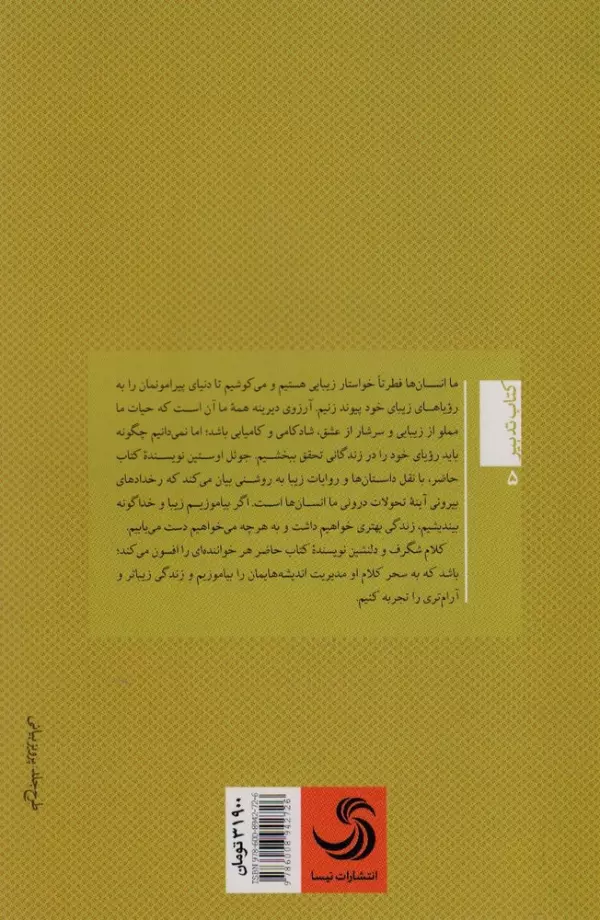 ما انسان‌ها فطرتاً خواستار زیبایی هستیم و می‌کوشیم تا دنیای پیرامونمان را به
رؤیاهای زیبای خود پیوند زنیم. آرزوی دیرینه همهٔ ما آن است که حیات ما
مملو از زیبایی و سرشار از عشق، شادکامی و کامیابی باشد؛ اما نمی‌دانیم چگونه
باید رؤیای خود را در زندگانی تحقق ببخشیم. جوئل اوستین نویسندهٔ کتاب
حاضر، با نقل داستان‌ها و روایات زیبا به روشنی بیان می‌کند که رخدادهای
بیرونی آینهٔ تحولات درونی ما انسان‌ها است. اگر بیاموزیم زیبا و خداگونه
بیندیشیم، زندگی بهتری خواهیم داشت و به هرچه می‌خواهیم دست می‌یابیم.
کلام شگرف و دلنشین نویسندهٔ کتاب حاضر هر خواننده‌ای را افسون می‌کند؛
باشد که به سحر کلام او مدیریت اندیشه‌هایمان را بیاموزیم و زندگی زیباتر و
آرام‌تری را تجربه کنیم.
کتاب تدبیر
۵
طرح جلد: پرویز بیانی
۳۱۹۰۰ تومان
ISBN 978-600-8942-72-6
9 786008 942726
انتشارات تیسا